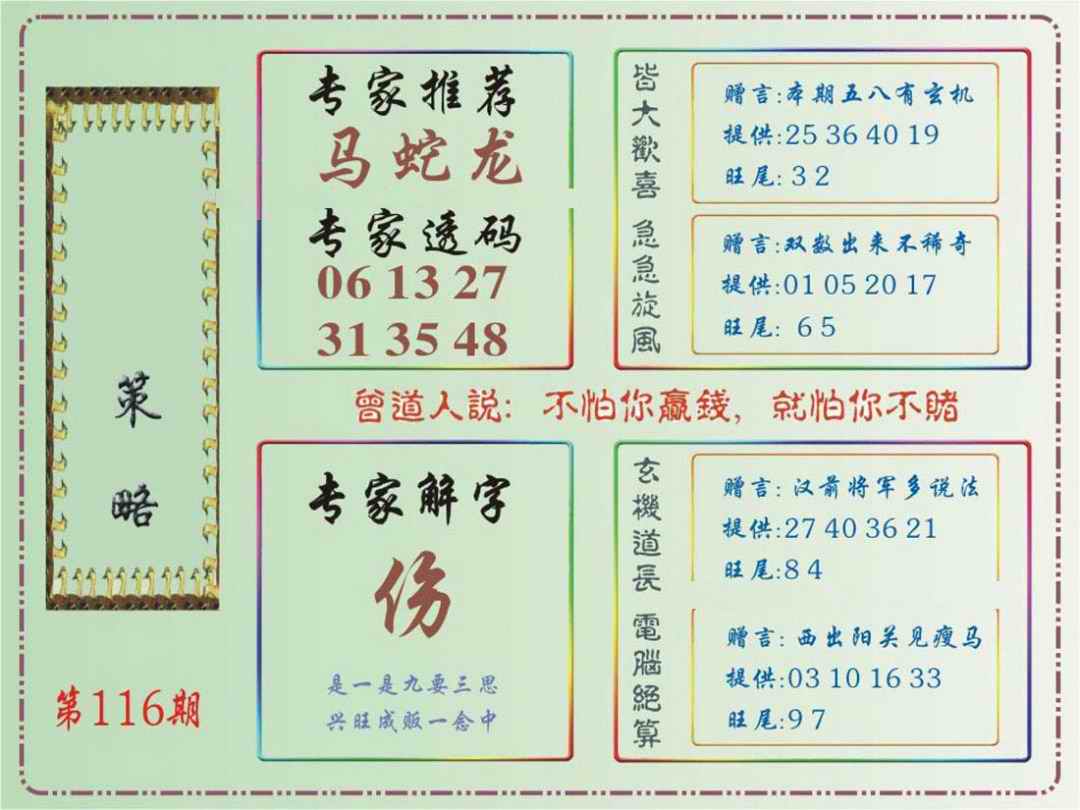 策略
第116期
专家推荐
马蛇龙
专家透码
06 13 27
31 35 48
皆大歡喜
赠言:本期五八有玄机
提供:25 36 40 19
旺尾: 3 2
急急旋風
赠言:双数出来不稀奇
提供:01 05 20 17
旺尾: 6 5
曾道人説: 不怕你贏錢, 就怕你不賭
专家解字
伤
是一是九要三思
兴旺成贩一念中
玄機道長
赠言: 汉前将军多说法
提供:27 40 36 21
旺尾:8 4
電腦絕算
赠言: 西出阳关见瘦马
提供:03 10 16 33
旺尾:9 7